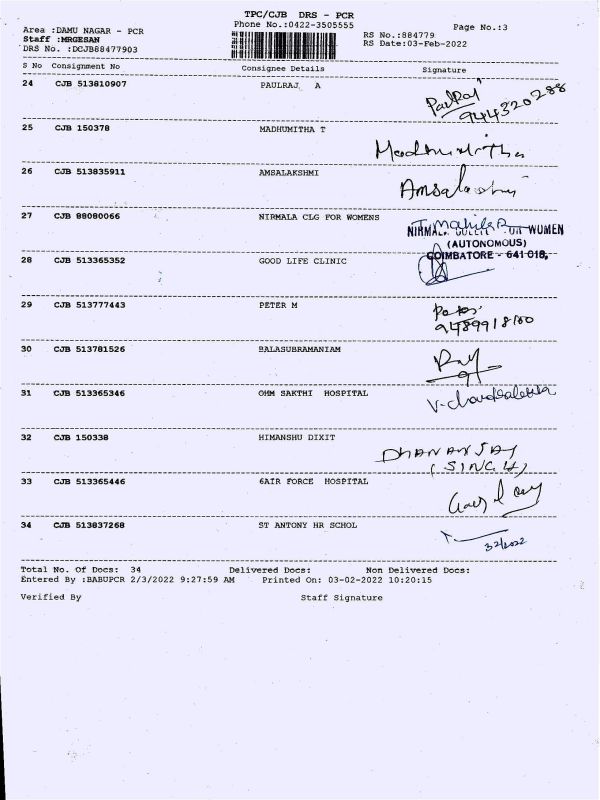 TPC/CJB DRS - PCR
Phone No.:0422-3505555
Page No.:3
Area :DAMU NAGAR - PCR
Staff :MRGESAN
DRS No. :DCJB88477903
RS No.:884779
RS Date:03-Feb-2022
S No Consignment No Consignee Details Signature
24 CJB 513810907 PAULRAJ A Paulraj
9444320288
25 CJB 150378 MADHUMITHA T Madhumitha
26 CJB 513835911 AMSALAKSHMI Amsalakshmi
27 CJB 88080066 NIRMALA CLG FOR WOMENS
WOMEN
(AUTONOMOUS)
COIMBATORE - 641 018,
28 CJB 513365352 GOOD LIFE CLINIC
29 CJB 513777443 PETER M Peter
30 CJB 513781526 BALASUBRAMANIAM
31 CJB 513365346 OHM SAKTHI HOSPITAL
32 CJB 150338 HIMANSHU DIXIT DHANANJAY
(SINGH)
33 CJB 513365446 6AIR FORCE HOSPITAL
34 CJB 513837268 ST ANTONY HR SCHOL
3/2/2022
Total No. Of Docs: 34 Delivered Docs: Non Delivered Docs:
Entered By :BABUPCR 2/3/2022 9:27:59 AM Printed On: 03-02-2022 10:20:15
Verified By Staff Signature